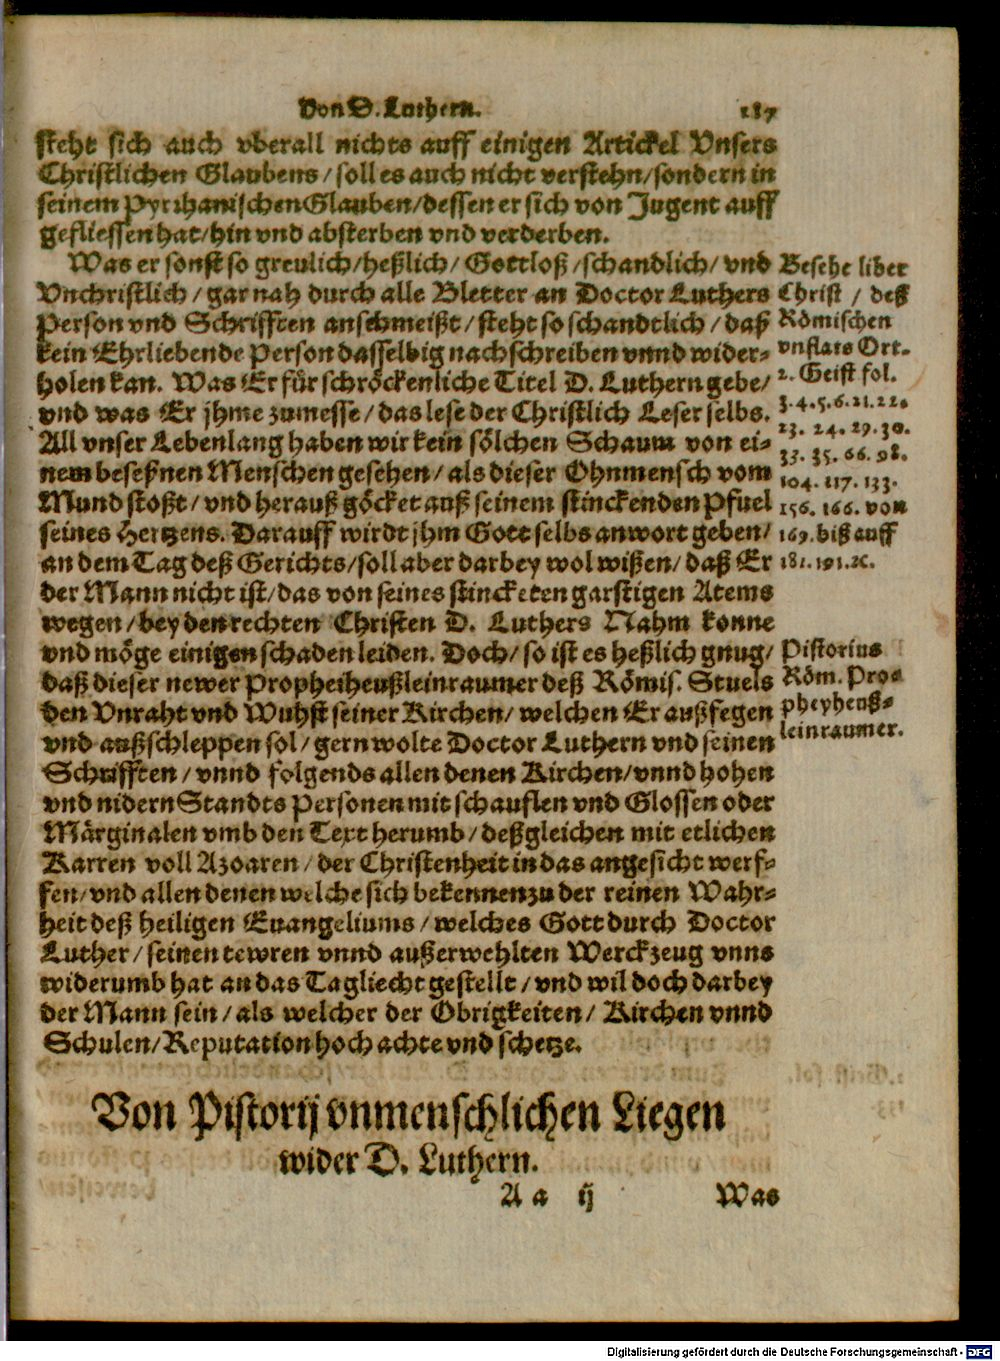 Von D. Luthern. 187
steht sich auch vberall nichts auff einigen Artickel Vnsers
Christlichen Glaubens / soll es auch nicht verstehn / sondern in
seinem Pyrrhanischen Glauben / dessen er sich von Jugent auff
gefliessen hat / hin vnd absterben vnd verderben.
Was er sonst so greulich / heßlich / Gottloß / schandlich / vnd
Vnchristlich / gar nah durch alle Bletter an Doctor Luthers
Person vnd Schrifften anschmeißt / steht so schandtlich / daß
kein Ehrliebende Person dasselbig nachschreiben vnnd wider-
holen kan. Was Er für schröckenliche Titel D. Luthern gebe /
vnd was Er jhme zumesse / das lese der Christlich Leser selbs.
All vnser Lebenlang haben wir kein sölchen Schaum von ei-
nem beseßnen Menschen gesehen / als dieser Ohnmensch vom
Mund stoßt / vnd herauß göcket auß seinem stinckenden Pfuel
seines Hertzens. Darauff wirdt jhm Gott selbs anwort geben /
an dem Tag deß Gerichts / soll aber darbey wol wißen / daß Er
der Mann nicht ist / das von seines stincketen garstigen Atems
wegen / bey den rechten Christen D. Luthers Nahm konne
vnd möge einigen schaden leiden. Doch / so ist es heßlich gnug /
daß dieser newer Propheiheußleinraumer deß Römis. Stuels
den Vnraht vnd Wuhst seiner Kirchen / welchen Er außfegen
vnd außschleppen sol / gern wolte Doctor Luthern vnd seinen
Schrifften / vnnd folgends allen denen Kirchen / vnnd hohen
vnd nidern Standts Personen mit schauflen vnd Glossen oder
Märginalen vmb den Text herumb / deßgleichen mit etlichen
Karren voll Azoaren / der Christenheit in das angesicht werf-
fen / vnd allen denen welche sich bekennen zu der reinen Wahr-
heit deß heiligen Euangeliums / welches Gott durch Doctor
Luther / seinen tewren vnnd außerwehlten Werckzeug vnns
widerumb hat an das Tagliecht gestellt / vnd wil doch darbey
der Mann sein / als welcher der Obrigkeiten / Kirchen vnnd
Schulen / Reputation hoch achte vnd schetze.
Besehe liber
Christ / deß
Römischen
vnflats Ort.
2. Geist fol.
3. 4. 5. 6. 21. 22.
23. 24. 29. 30.
33. 35. 66. 98.
104. 117. 133.
156. 166. von
169. biß auff
181. 191. ꝛc.
Pistorius
Röm. Pro-
pheyheuß-
leinraumer.
Von Pistorij vnmenschlichen Liegen
wider D. Luthern.
A a ij Was
Digitalisierung gefördert durch die Deutsche Forschungsgemeinschaft - DFG